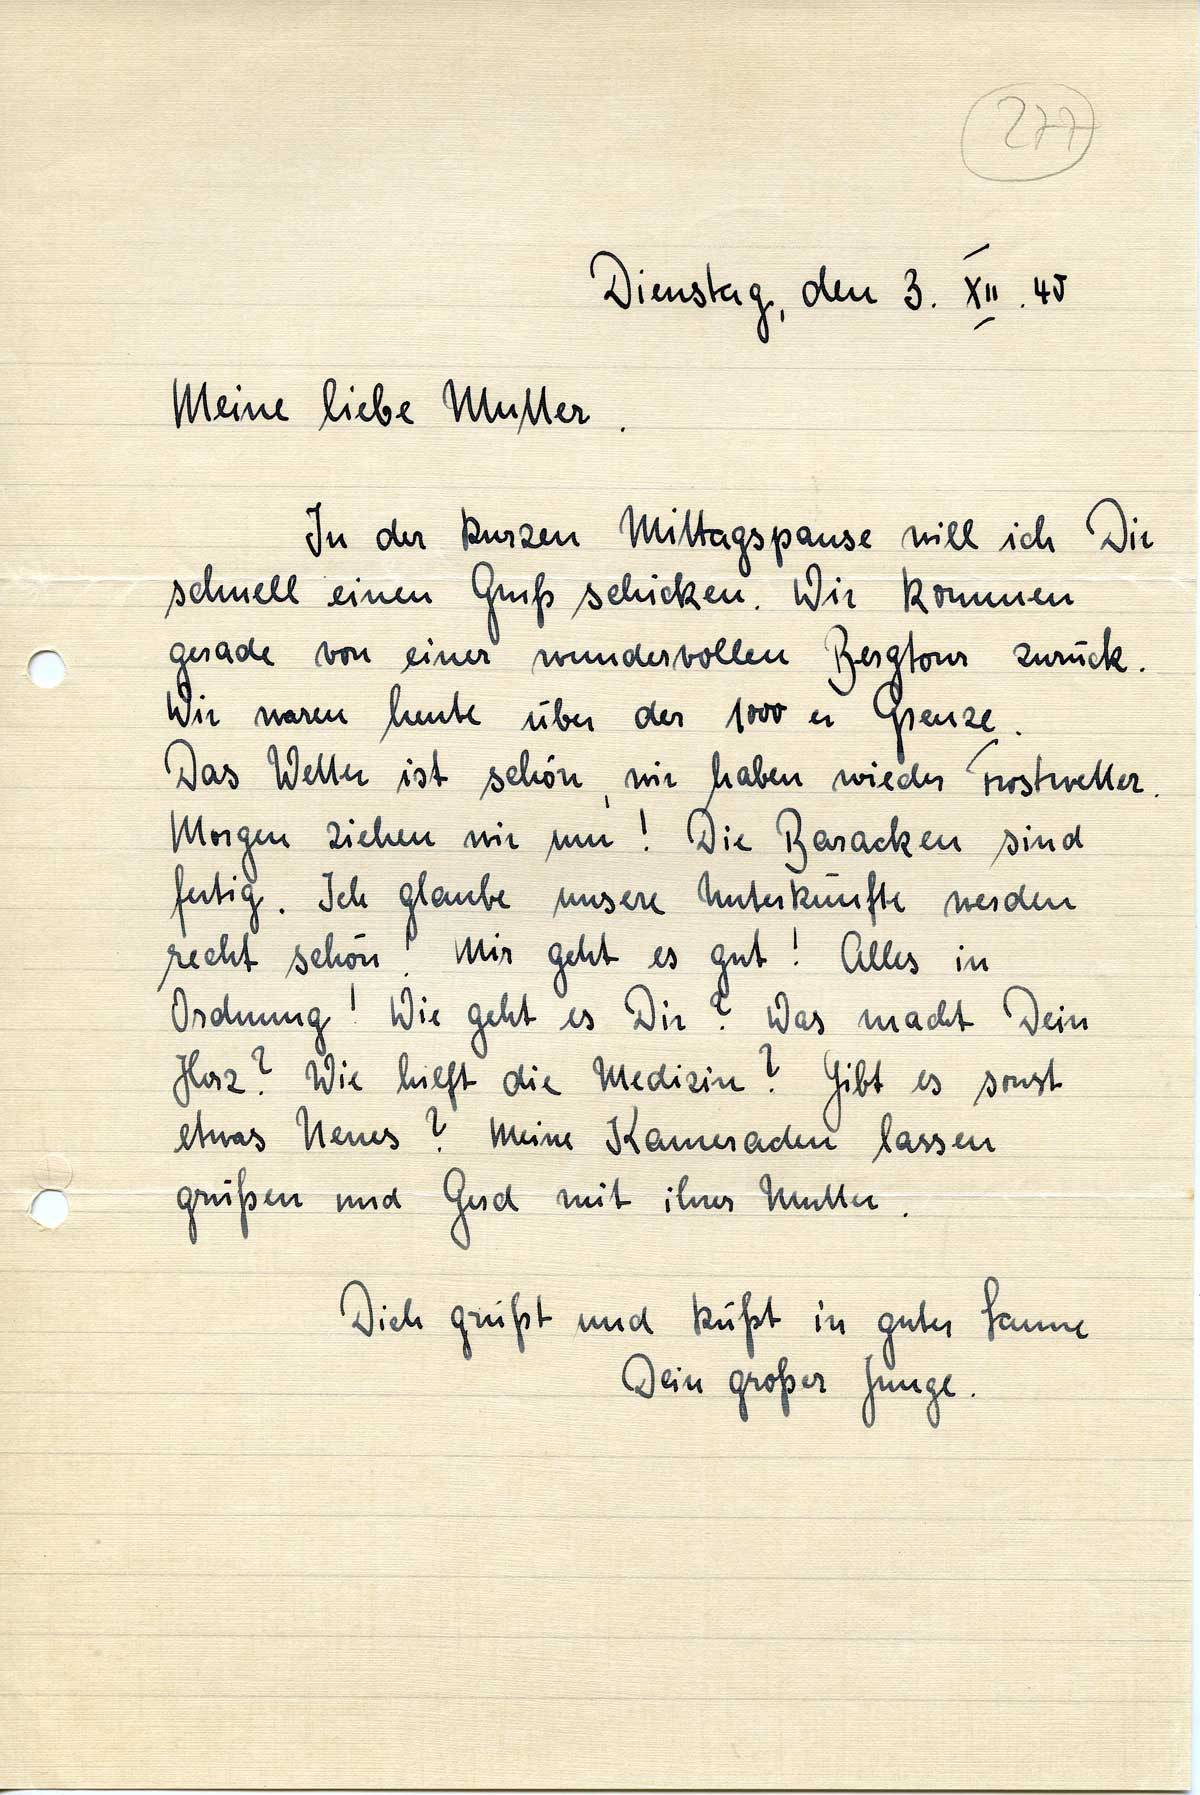 277
Dienstag, den 3. XII. 40
Meine liebe Mutter.
In der kurzen Mittagspause will ich Dir
schnell einen Gruß schicken. Wir kommen
gerade von einer wundervollen Bergtour zurück.
Wir waren heute über der 1000 er Grenze.
Das Wetter ist schön, wir haben wieder Frostwetter.
Morgen ziehen wir um! Die Baracken sind
fertig. Ich glaube unsere Unterkünfte werden
recht schön! Mir geht es gut! Alles in
Ordnung! Wie geht es Dir? Was macht Dein
Herz? Wie hilft die Medizin? Gibt es sonst
etwas Neues? Meine Kameraden lassen
grüßen und Gerd mit ihrer Mutter.
Dich grüßt und küßt in guter Laune
Dein großer Junge.